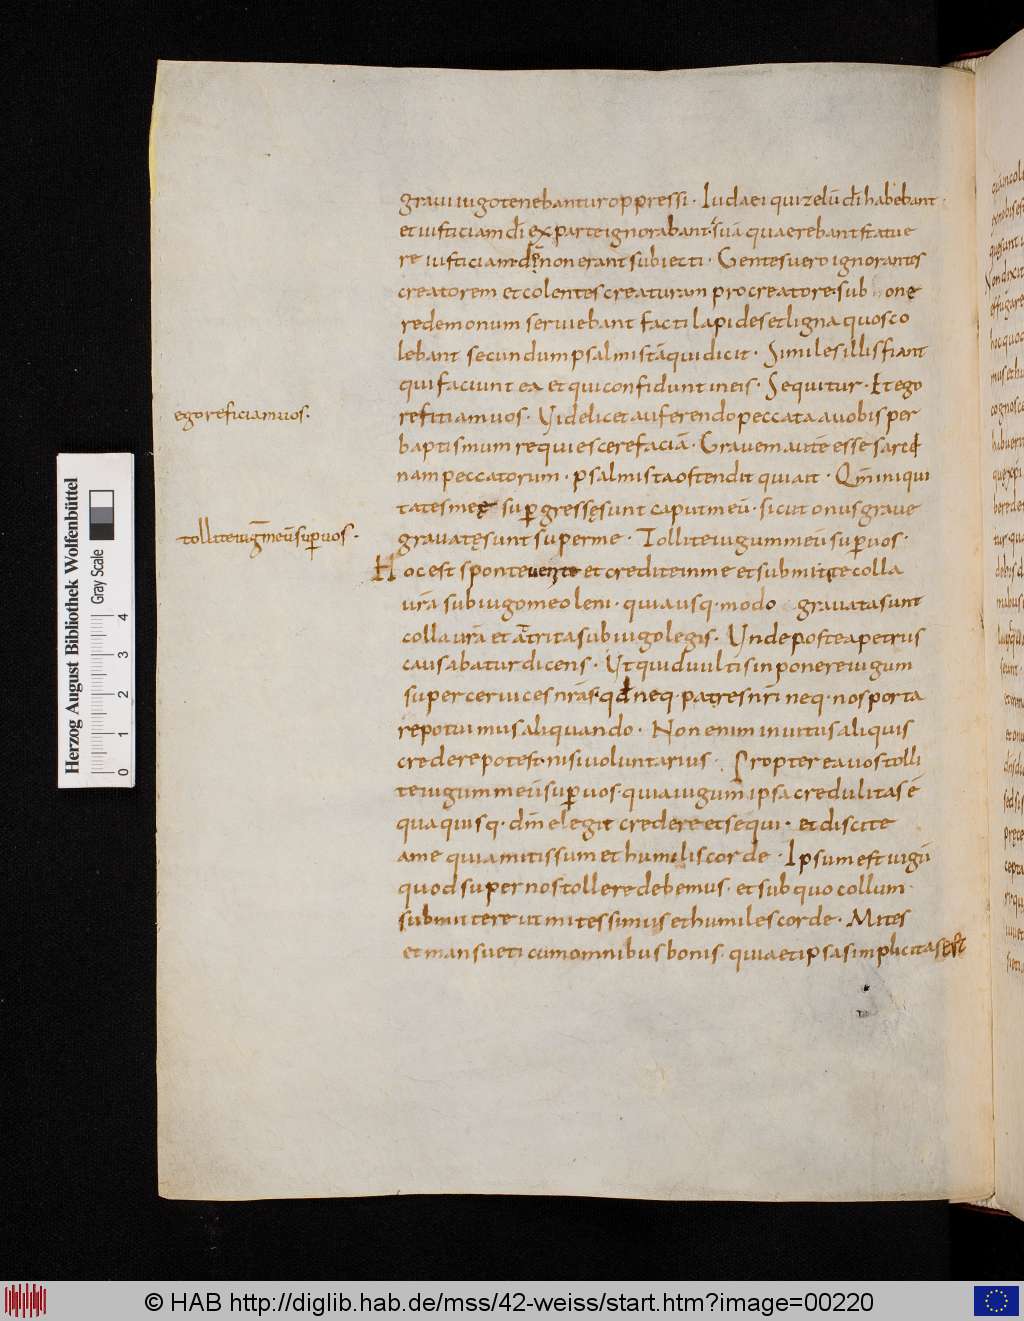 graui iugo tenebantur oppressi · Iudaei qui zelū dī habebant ·
et iusticiam dī ex parte ignorabant · suā quaerebant statue
re iusticiam dī non erant subiecti · Gentes uero ignorantes
creatorem et colentes creaturam pro creatore · sub onę
re demonum seruiebant facti lapides et ligna quos co
lebant secundum psalmistā qui dicit · Similes illis fiant
qui faciunt ea et qui confidunt in eis · Sequitur · Et ego
ego reficiam uos ·
refitiam uos · Videlicet auferendo peccata a uobis per
baptismum requiescere faciā · Grauem autē esse sarci
nam peccatorum · psalmista ostendit qui ait · Qm̄ iniqui
tates meę sup gressę sunt caput meū · sicut onus graue
tollite iugm̄ meū sup uos ·
grauatę sunt super me · Tollite iugum meū sup uos ·
Hoc est sponte uenite et credite in me et submittite colla
urā sub iugo meo leni · quia usq · modo grauata sunt
colla urā et attrita sub iugo legis · Vnde postea petrus
causabatur dicens · Vt quid uultis inponere iugum
super ceruices nrās · qd neq · patres nrī neq · nos porta
re potuimus aliquando · Non enim inuitus aliquis
credere potest · nisi uoluntarius · Propterea uos tolli
te iugum meū sup uos · quia iugum ipsa credulitas ē
qua quisq · dm̄ elegit credere et sequi · et discite
a me quia mitis sum et humilis corde · Ipsum est iugū
quod super nos tollere debemus · et sub quo collum ·
submittere ut mites simus et humiles corde · Mites
et mansueti cum omnibus bonis · quia et ipsa simplicitas est
Herzog August Bibliothek Wolfenbüttel
Gray Scale
0 1 2 3 4
© HAB http://diglib.hab.de/mss/42-weiss/start.htm?image=00220